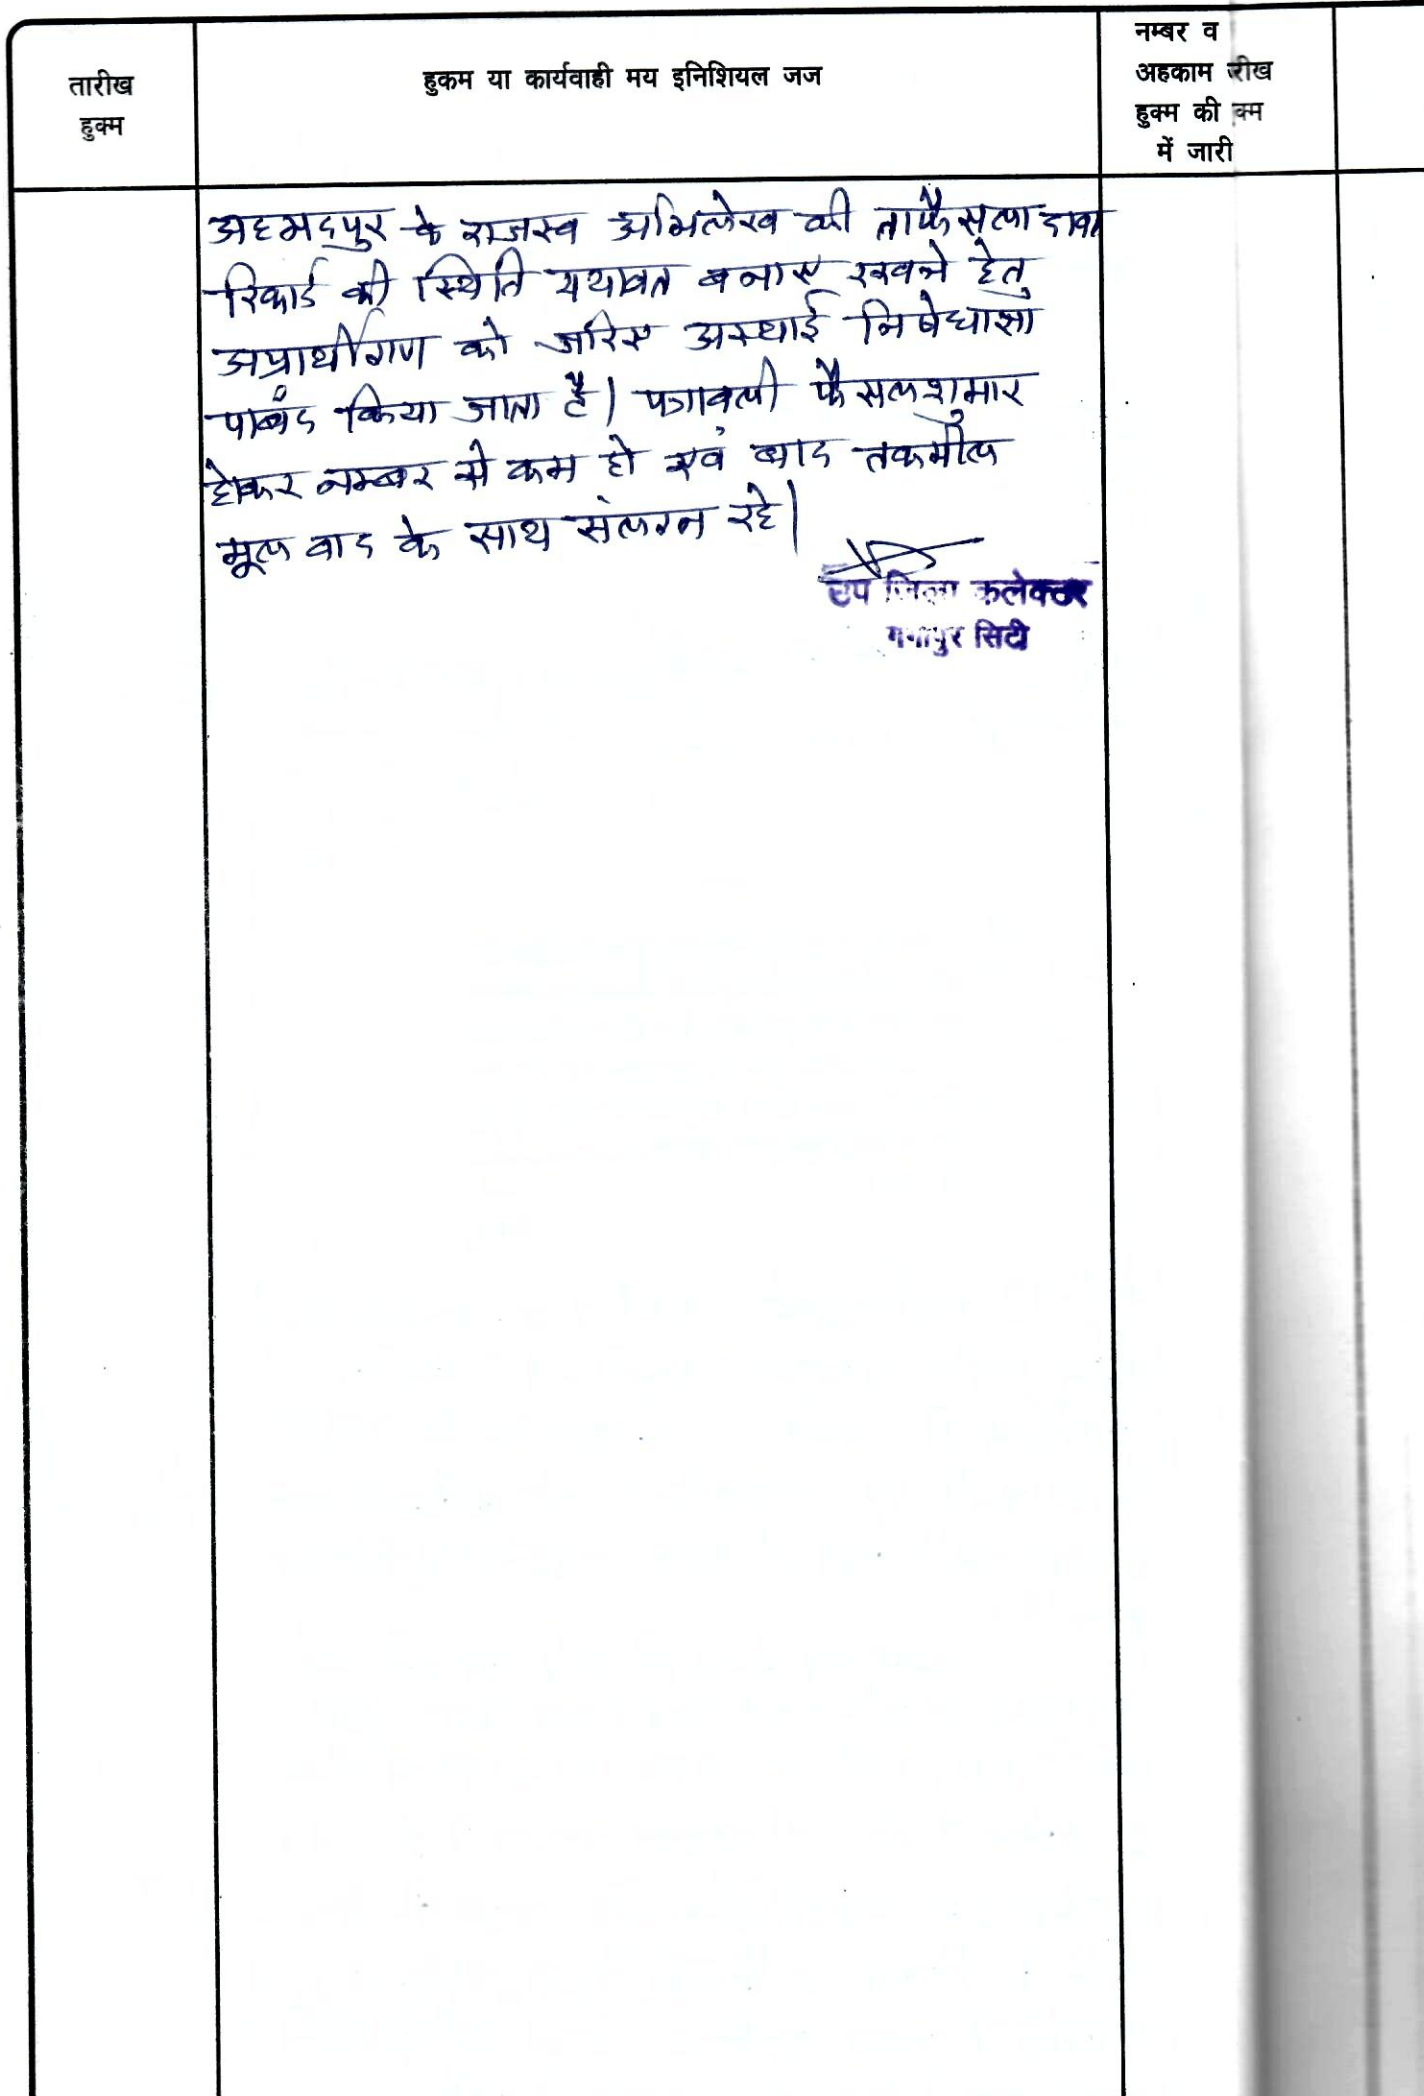 तारीख
हुक्म
हुकम या कार्यवाही मय इनिशियल जज
नम्बर व
अहकाम रीख
हुक्म की क्म
में जारी
अहमदपुर के राजस्व अभिलेख की ताफैसला दावा
रिकार्ड की स्थिति यथावत बनाए रखने हेतु
अप्रार्थीगण को जरिए अस्थाई निषेधाज्ञा
पाबंद किया जाता है। पत्रावली फैसलशुमार
होकर नम्बर से कम हो एवं बाद तकमील
मूल वाद के साथ संलग्न रहे।
उप जिला कलेक्टर
गंगापुर सिटी